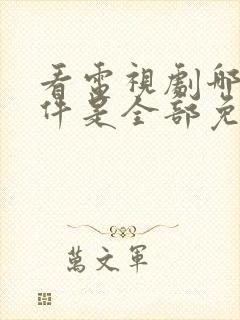 看電視劇哪
件是全部免
萬文軍